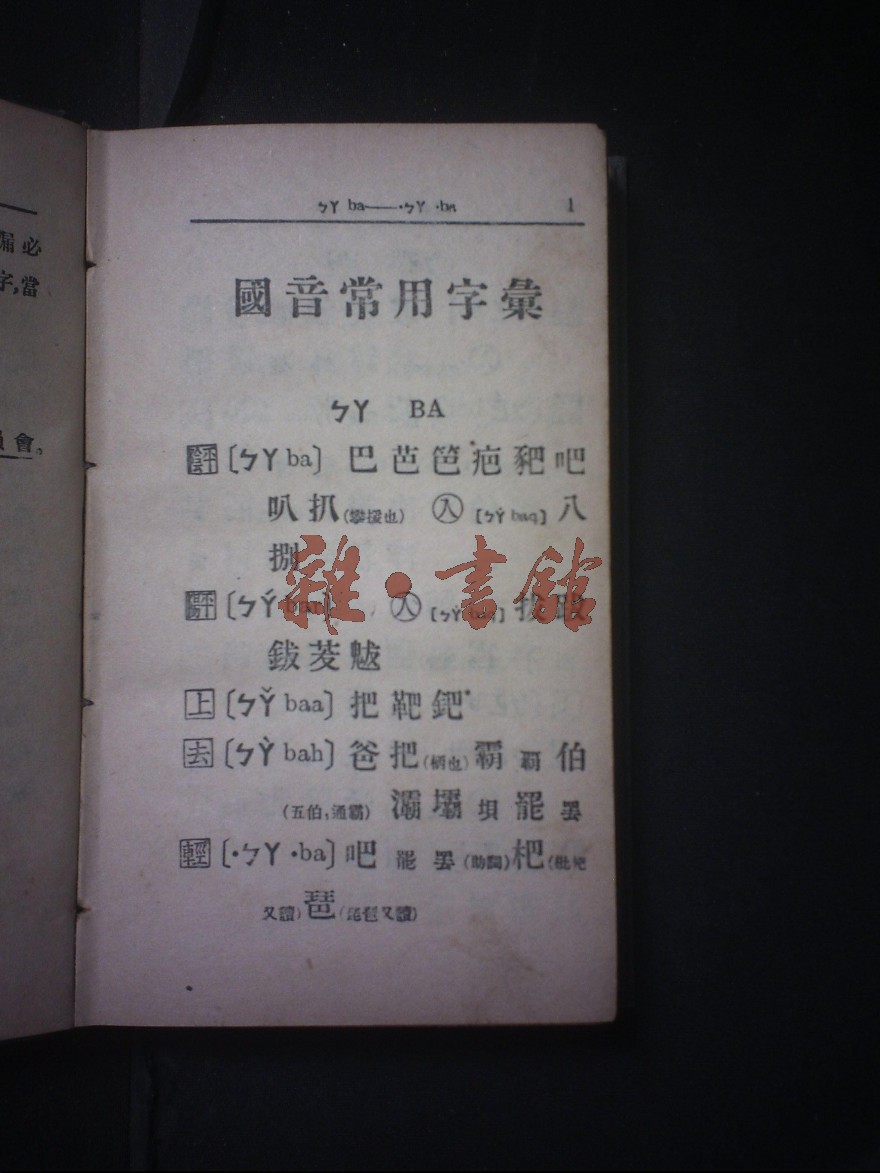 漏必
字,當
會。
ㄅㄚ ba——·ㄅㄚ ·ba 1
國音常用字彙
ㄅㄚ BA
陰平〔ㄅㄚ ba〕 巴芭笆疤豝吧
叭扒(攀援也) 入 [ㄅㄚ̇ baq] 八
捌
陽平〔ㄅㄚˊ bar〕 入
鈸茇魃
上〔ㄅㄚˇ baa〕把靶鈀
去〔ㄅㄚˋ bah〕爸把(柄也)霸覇伯
(五伯,通霸) 灞壩垻罷罢
輕〔·ㄅㄚ ·ba〕吧罷罢(助詞)杷(枇杷
又讀)琶(琵琶又讀)
雜·書館